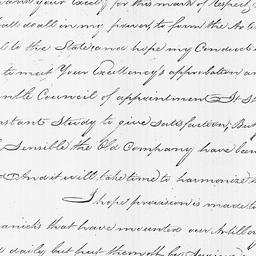 your Excelly for this mark of respect,
all do all in my power, to form the Artil
to the State, and hope my Conduct
to meet Your Excellency's approbation an
mble Council of appointment It s
stant Study to give satisfaction, But
Sensible the Old Company have been
And it will take time to harmonize
I hope provision is made to
anicks that have mounted our Artiller
daily but put them off by